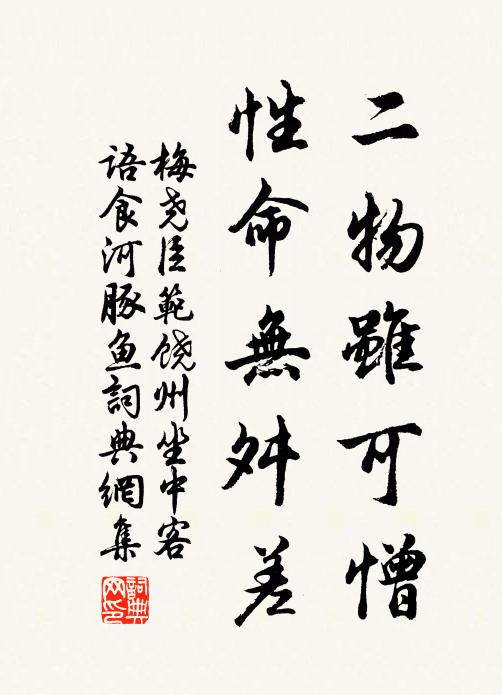 二物雖可憎
性命無舛差
梅尧臣範饶州坐中客
语食河豚鱼詞典網集
詞典網印